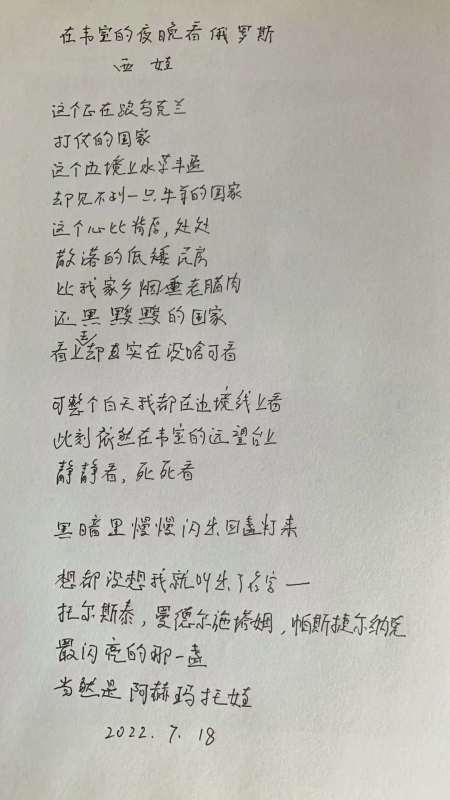 在韦室的夜晚看俄罗斯
西娃
这个正在跟乌克兰
打仗的国家
这个边境上水草丰盈
却见不到一只牛羊的国家
这个 处处
散落的低矮民房
比我家乡烟熏老腊肉
还黑黢黢的国家
看上去却真实在没啥可看
可整个白天我都在边境线上看
此刻依然在韦室的远望台上
静静看，死死看
黑暗里慢慢闪出四盏灯来
想都没想我就叫出了名字——
托尔斯泰，曼德尔施塔姆，帕斯捷尔纳克
最闪亮的那一盏
当然是阿赫玛托娃
2022.7.18